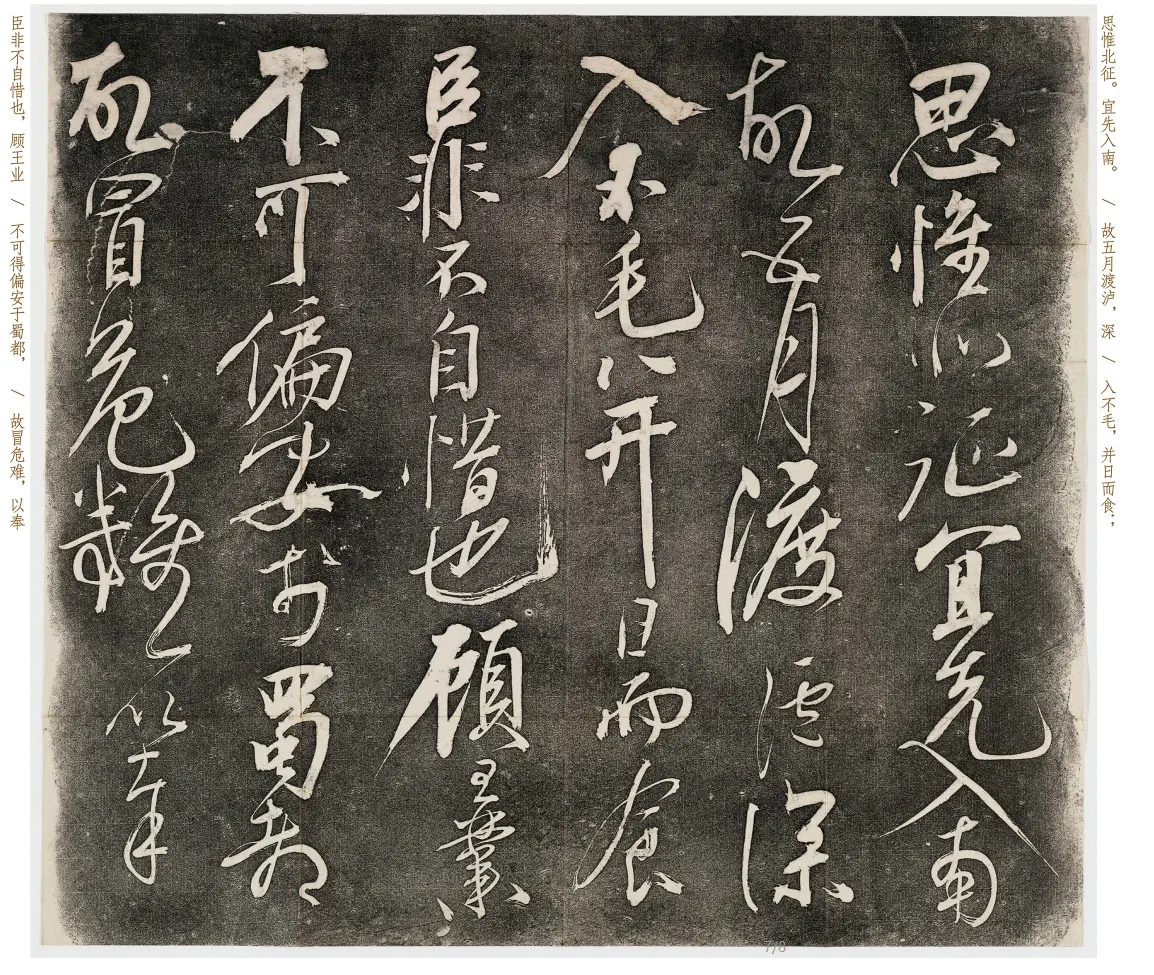 思惟北征。宜先入南。 / 故五月渡泸，深 / 入不毛，并日而食；
思惟北征宜先入南
故五月渡瀘深
入不毛并日而食
臣非不自惜也顧王業
不可偏安於蜀都
故冒危難以奉
臣非不自惜也，顾王业 / 不可得偏安于蜀都， / 故冒危难，以奉
7/8